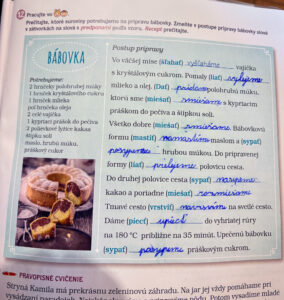 12 Pracujte vo
Prečítajte, ktoré suroviny potrebujeme na prípravu bábovky. Zmeňte v postupe prípravy bábovky slová
v zátvorkách na slová s predponami podľa textu. Recept prečítajte.
BÁBOVKA
Potrebujeme:
2 hrnčeky polohrubej múky
1 hrnček kryštálového cukru
1 hrnček mlieka
pol hrnčeka oleja
2 celé vajíčka
1 kypriaci prášok do pečiva
2 polievkové lyžice kakaa
štipku soli
maslo, hrubú múku,
práškový cukor
Postup prípravy
Vo väčšej mise (šľahať) vyšľaháme vajíčka
s kryštálovým cukrom. Pomaly (liať) vylejeme
mlieko a olej. (Dať) pridáme polohrubú múku,
ktorú sme (miešať) zmiešame s kypriacim
práškom do pečiva a štipkou soli.
Všetko dobre (miešať) zmiešame. Bábovkovú
formu (mastiť) namastíme maslom a (sypať)
posypeme hrubou múkou. Do pripravenej
formy (liať) prelejeme polovicu cesta.
Do druhej polovice cesta (sypať) nasypeme
kakao a poriadne (miešať) rozmiešame
Tmavé cesto (vrstviť) navrstvíme na svetlé cesto.
Dáme (piecť) upiecť do vyhriatej rúry
na 180 °C približne na 35 minút. Upečenú bábovku
(sypať) posypeme práškovým cukrom.
PRAVOPISNÉ CVIČENIE
Stryná Kamila má prekrásnu zeleninovú záhradu. Na jar jej vždy pomáham pri